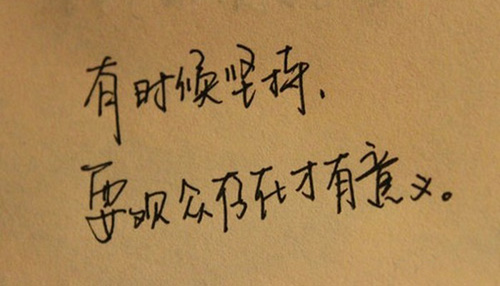 有时候坚持、
要观众存在才有意义。